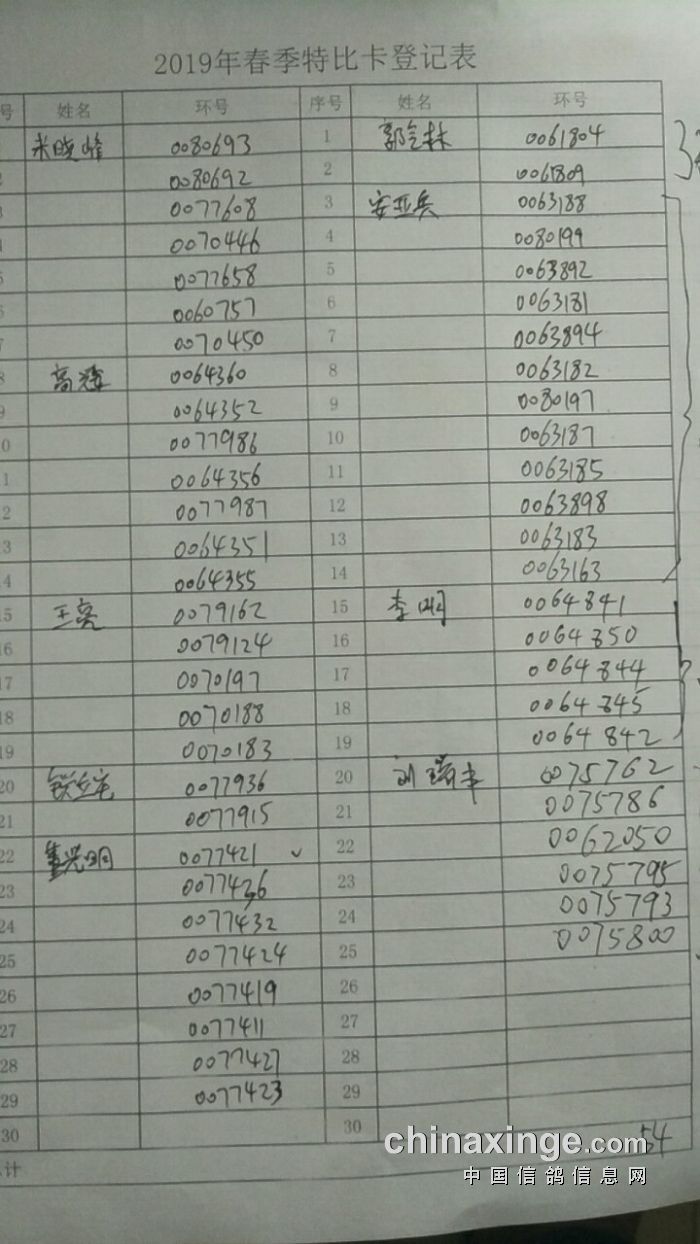 2019年春季特比卡登记表
号 姓名 环号 序号 姓名 环号
米晓峰 0080693 1 郭会林 0061804
2 0080692 2 0061809
3 0077608 3 安亚兵 0063188
4 0070446 4 0080199
5 0077658 5 0063892
6 0060757 6 0063181
7 0070450 7 0063894
8 高 0064360 8 0063182
9 0064352 9 0080197
0 0077986 10 0063187
1 0064356 11 0063185
2 0077987 12 0063898
3 0064351 13 0063183
4 0064355 14 0063163
15 王亮 0079162 15 李刚 0064841
16 0079124 16 0064850
17 0070197 17 0064844
18 0070188 18 0064845
19 0070183 19 0064842
20 0077936 20 刘瑞丰 0075762
21 0077915 21 0075786
22 0077421 ✓ 22 0062050
23 0077426 23 0075795
24 0077432 24 0075793
25 0077424 25 0075800
26 0077419 26
27 0077411 27
28 0077427 28
29 0077423 29
30 30
计 54
chinaxinge.com
中国信鸽信息网